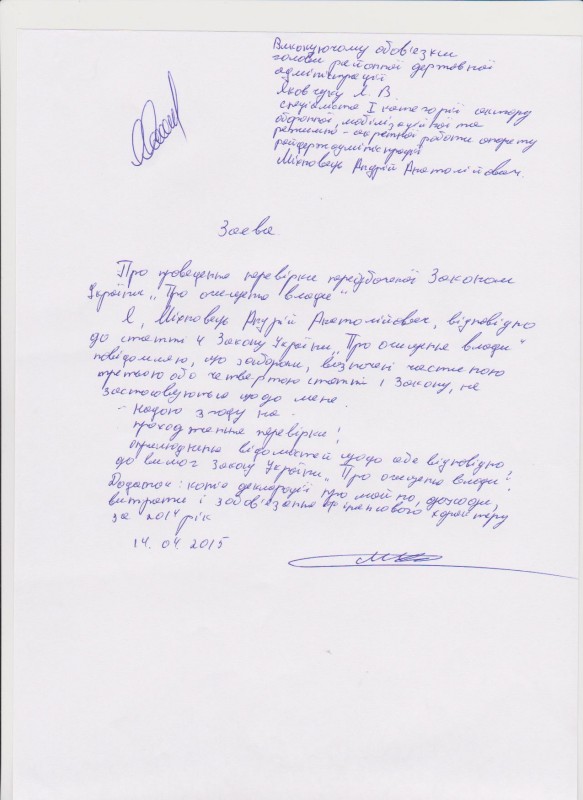 Виконуючому обов'язки
голови районної державної
адміністрації
Яковчуку Я. В.
спеціаліста I категорії сектору
оборонної, мобілізаційної та
режимно-секретної роботи апарату
райдержадміністрації
Міхновець Андрій Анатолійович.
Заява
Про проведення перевірки передбаченої Законом
України „Про очищення влади"
Я, Міхновець Андрій Анатолійович, відповідно
до статті 4 Закону України „Про очищення влади"
повідомляю, що заборони, визначені частиною
третьою або четвертою статті 1 Закону, не
застосовуються щодо мене.
- Надаю згоду на -
проходження перевірки;
оприлюднення відомостей щодо себе відповідно
до вимог Закону України „Про очищення влади".
Додаток: копія декларації про майно, доходи,
витрати і зобов'язання фінансового характеру
за 2014 рік
14. 04. 2015